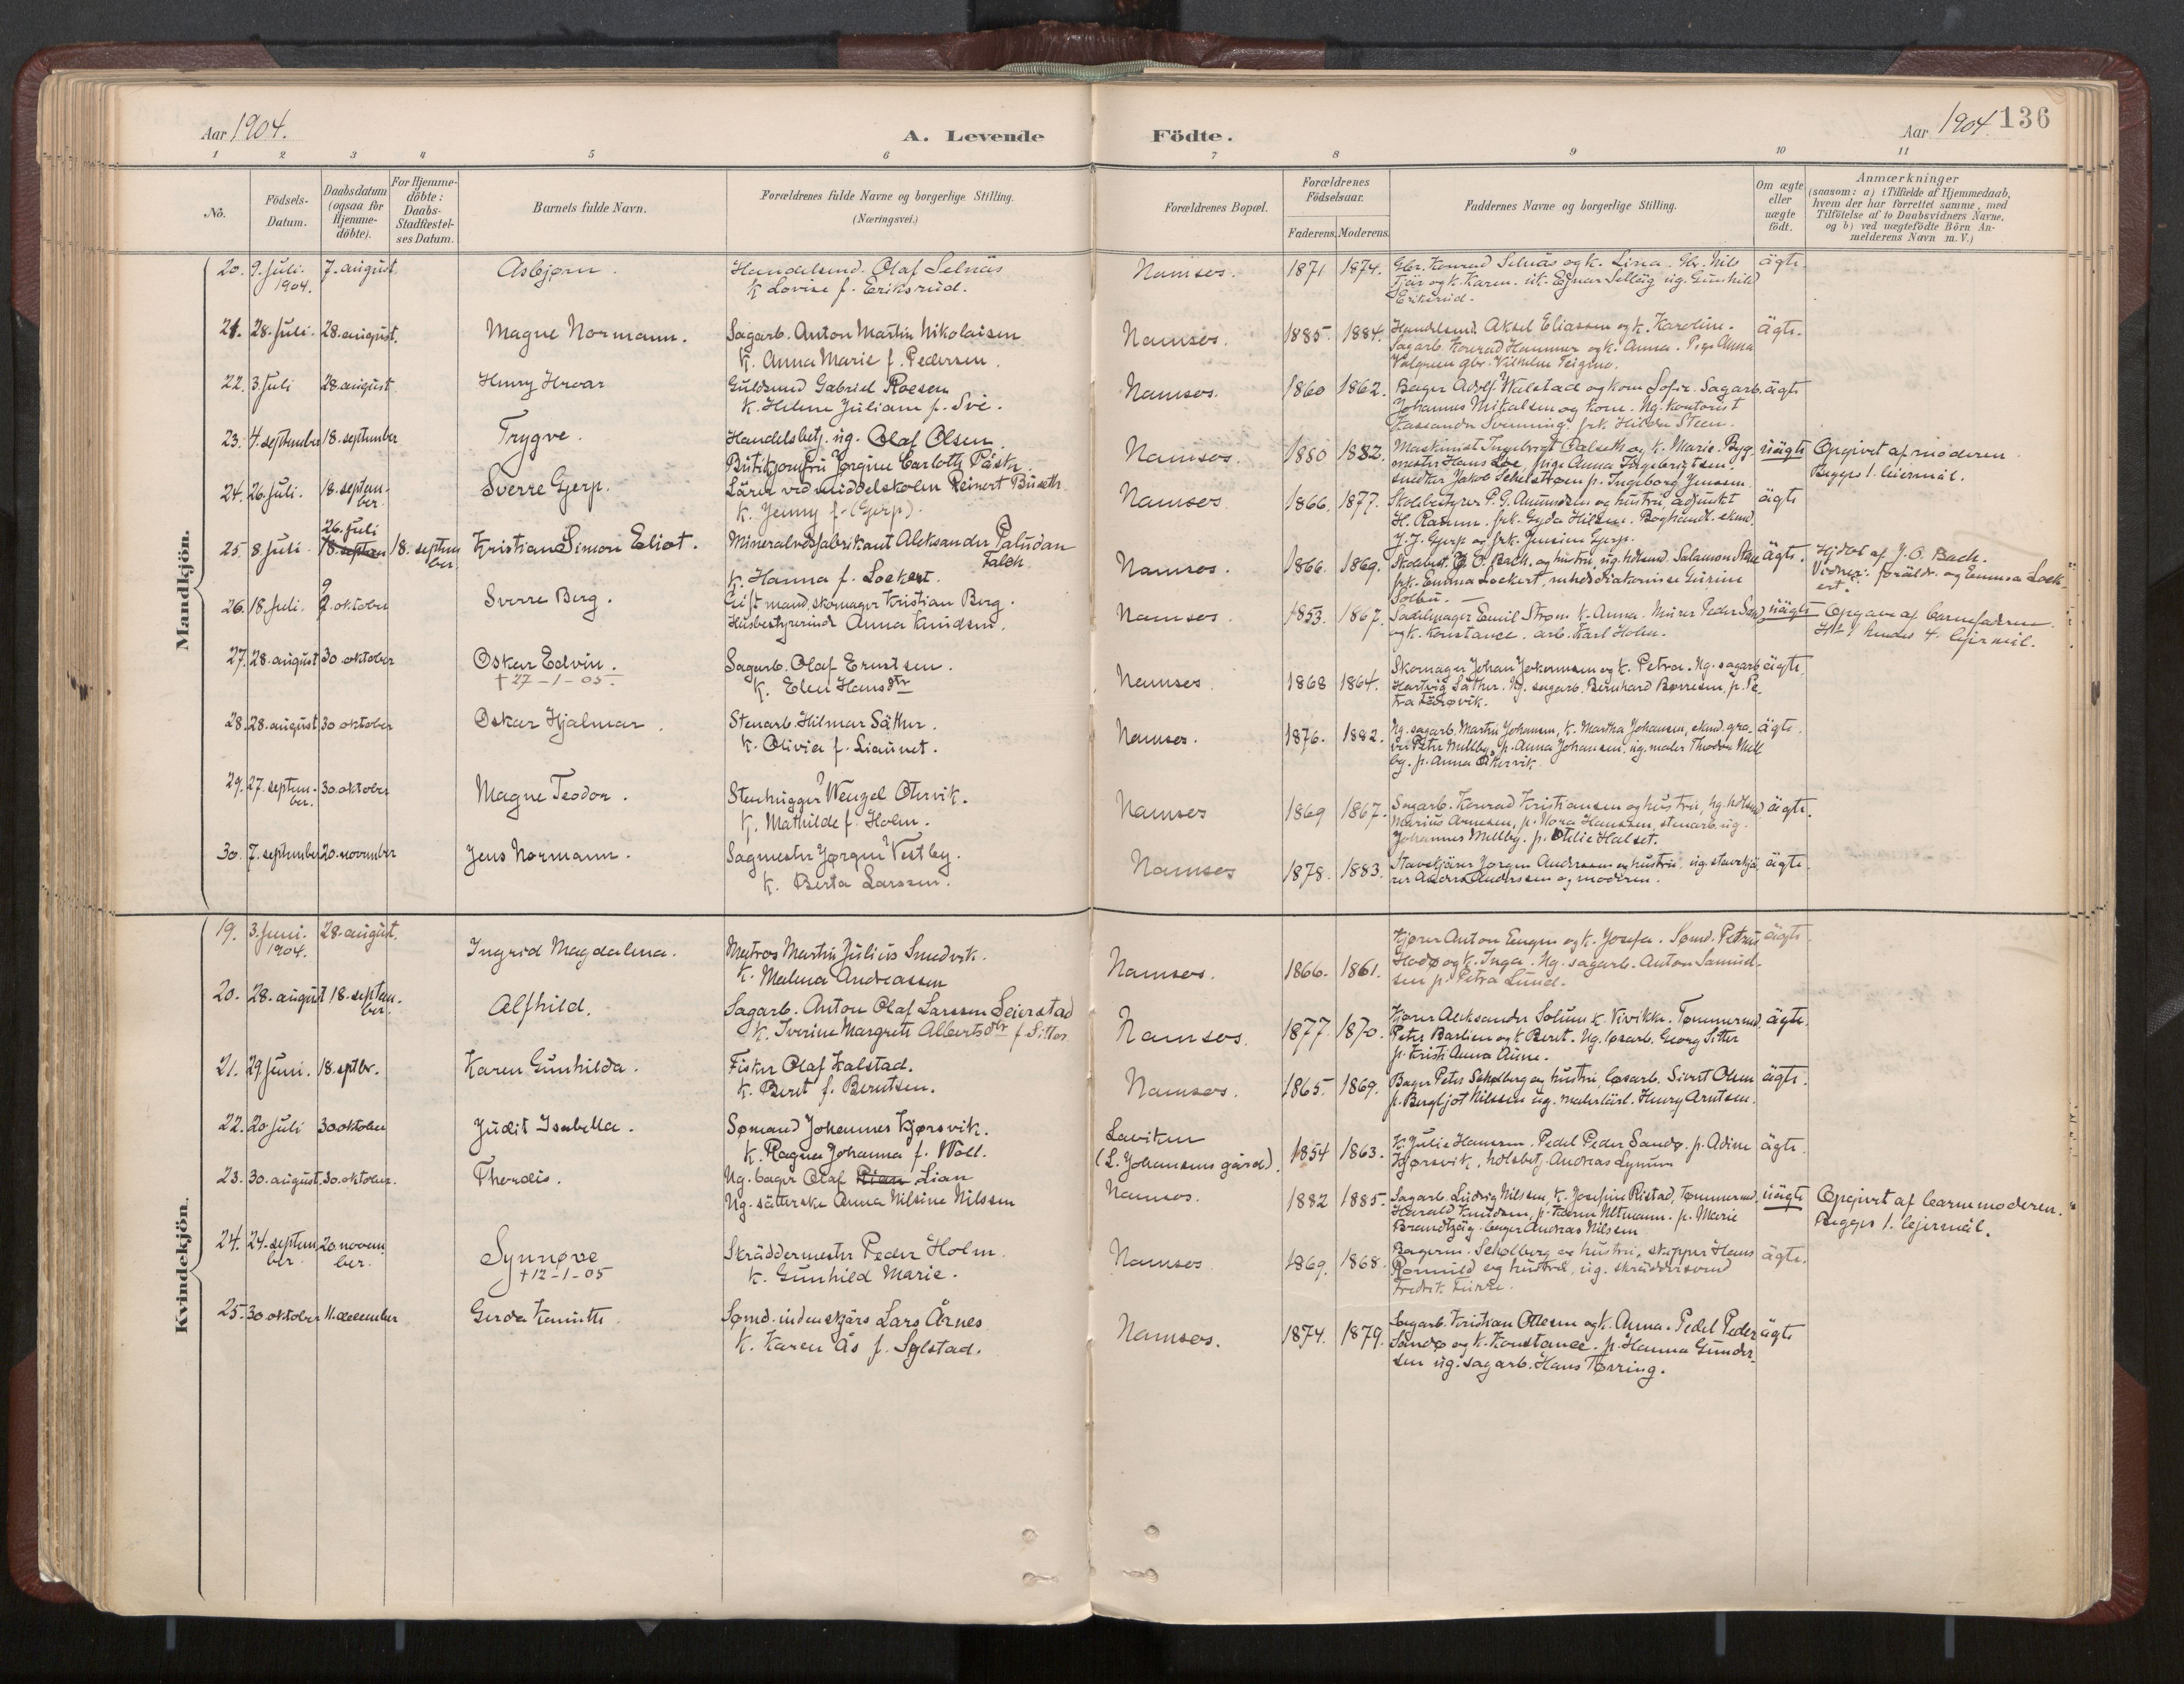 Aar 1904.
A. Levende
Födte.
Aar 1904. 136
1 2 3 4 5 6 7 8 9 10 11
No.
Födsels-
Datum.
Daabsdatum
(ogsaa for
Hjemme-
döbte).
For Hjemme-
döbte:
Daabs-
Stadfæstel-
ses Datum.
Barnets fulde Navn.
Forældrenes fulde Navne og borgerlige Stilling.
(Næringsvei.)
Forældrenes Bopæl.
Forældrenes
Födselsaar.
Faderens. Moderens.
Faddernes Navne og borgerlige Stilling.
Om ægte
eller
uægte
födt.
Anmærkninger
(saasom: a) i Tilfælde af Hjemmedaab,
hvem der har forrettet samme, med
Tilföielse af to Daabsvidners Navne,
og b) ved uægtefödte Börn An-
melderens Navn m. V.)
Mandkjön.
20. 9. juli. 1904. 7. august. Asbjørn.
Handelsmd. Olaf Selnäs
k. Lovise f. Eriksrud.
Namsos. 1871 1874.
Gbr. Konrad Selnäs og k. Lina. Gbr. Nils
Fjär og k. Karen. uk. Egnar Selläg ug. Gunhild
Eriksrud.
ägte.
21. 28. juli. 28. august. Magne Normann.
Sagarb. Anton Martin Nikolaisen
k. Anna Marie f. Pedersen.
Namsos. 1885. 1884.
Handelsmd. Aksel Eliassen og k. Karoline.
Sagarb. Konrad Hammer og k. Anna. Pige Anna
Valgren gbr. Vilhelm Teigmo.
ägte.
22. 3. juli 28. august Henry Hroar
Guldsmed Gabriel Roesen
k. Helene Juliane f. Sve.
Namsos. 1860 1862.
Bager Adolf Walstad og kone Sofie. Sagarb.
Johannes Mikalsen og kone. Ug. kontorist
Kassandra Svenning. frk. Hilda Steen.
ägte
23. 4. september 18. september Trygve.
Handelsbetj. ug. Olaf Olsen.
Butikjomfru Jørgine Carlotte Päske
Namsos. 1880 1882.
Maskinist Ingebrigt Dalseth og k. Marie. Byg-
mester Hans Loe, pige Anna Ingebrigtsen.
smedker Jakob Sehlstrøm p. Ingeborg Jenssen
uägte
Opgivet af moderen.
Begges 1. leiermål.
24. 26. juli. 18. septem-
ber. Sverre Gjerp.
Lärer ved middelskolen Reinert Buseth
k. Jenny f. (Gjerp).
Namsos. 1866. 1877.
Skolebestyrer P. G. Amundsen og hustru, adjunkt
H. Ramm. frk. Gyda Hilsen. Boghandl. ekmd.
J. J. Gjerp og frk. Jensine Gjerp.
ägte
25. 8. juli 26. juli
18. septem 18. septem
ber Kristian Simon Eliot.
Mineralvdsfabrikant Aleksander Paludan
Falck
k. Hanna f. Lockert.
Namsos. 1866. 1869.
Skolebest. O. Bach. og hustru, ug. hdlsmd. Salamon Stene
frk. Emma Lockert, mhds diakonisse Guriene
Solbu.
ägte.
Hjdbt af J. O. Bach.
Vidner: foräldr. og Emma Lock-
ert.
26. 18. juli. 9. oktober Sverre Berg.
Gift mand, skomager Kristian Berg.
Husbestyrerinde Anna Knudsen.
Namsos. 1853. 1867.
Sadelmager Emil Strøm k. Anna. Murer Peder Sand
og k. Konstance. arb. Karl Holm.
uägte
Opgave af barnefaderen.
Hs 1 hendes 4. lejermål.
27. 28. august 30. oktober Oskar Edvin.
† 27-1-05.
Sagarb. Olaf Ernstsen.
k. Elen Hansdtr
Namsos. 1868 1864.
Skomager Johan Jakobmsen og k. Petra. Ug. sagarb
Hartvig Säther. Ug. sagarb. Bernhard Børresen, p. Pe-
tra Lerøvik.
ägte.
28. 28. august 30. oktober Oskar Hjalmar.
Stenarb. Hilmar Säther.
k. Olivia f. Liaunet.
Namsos. 1876. 1882.
Ug. sagarb. Martin Johansen, k. Martha Johansen, ekmd. gra-
vør Peter Mellby, p. Anna Johansen, ug. maler Theodor Mell
by. p. Anna Akervik.
ägte.
29. 27. septem-
ber. 30. oktober Magne Teodor.
Stenhugger Wenzel Otervik.
k. Mathilde f. Holm.
Namsos 1869 1867.
Sagarb. Konrad Kristiansen og hustru, ug. hdlsmd
Marius Arnesen, p. Nora Hanssen, stenarb. ug.
Johannes Mellby. p. Otilie Halset.
ägte.
30. 7. september 20. november Jens Normann.
Sagmester Jørgen Vestby.
k. Berta Larssen.
Namsos 1878. 1883.
Stavskjärer Jørgen Anderssen og hustru. ug. stavskjä-
rer Anders Anderssen og moderen.
ägte.
Kvindekjön.
19. 3. juni. 1904. 28. august. Ingrid Magdalena.
Matros Martin Julius Smedvik.
k. Malena Andreassen
Namsos. 1866. 1861.
Kjører Anton Eugen og k. Josefa. Sømd. Petrus
Hodø og k. Inga. Ug. sagarb. Anton Samuel-
sen p. Petra Lund.
ägte.
20. 28. august 18. septem-
ber. Alfhild.
Sagarb. Anton Olaf Larssen Seierstad
k. Iverine Margrete Albertsdtr f. Sitter
Namsos. 1877. 1870.
Kjører Aleksander Solum k. Vivikke. Tømmermd.
Peter Barlien og k Beret. Ug. løsarb. Georg Sitter
p. Kristi Anna Aune.
ägte.
21. 29. juni. 18. septbr. Karen Gunhilda.
Fisker Olaf Kalstad.
k. Beret f. Berntsen.
Namsos. 1865. 1869.
Bager Peter Scholberg og hustru, løsarb. Sivert Olsen
p. Bergljot Nilssen ug. malerlärl. Henry Arntsen.
ägte.
22. 20 juli 30 oktober Judit Isabella.
Sømand Johannes Kjørsvik.
k. Ragna Johanna f. Woll.
Laviken
(L. Johansens gård). 1854 1863.
k. Julie Hanssen. Pedel Peder Sandø. p. Adine
Kjørsvik, hdlsbetj. Andreas Lynum
ägte.
23. 30. august. 30. oktober. Thordis.
Ug. bager Olaf Rian Lian
Ug. sätterske Anna Nilsine Nilssen
Namsos. 1882 1885.
Sagarb. Ludvig Nilssen, k. Josefine Ristad, Tømmermd.
Harald Knudsen, p. Karen Altmann. p. Marie
Brandtzäg. bager Andreas Nilssen
uägte
Opgivet af barnemoderen.
Begges 1. lejermål.
24. 24. septem
ber 20. novem
ber. Synnøve
† 12-1-05
Skräddermester Peder Holm.
k. Gunhild Marie.
Namsos 1869. 1868.
Bagerm. Scholberg og hustru, skipper Hans
Romuld og hustru, ug. skräddersvend
Fredrik Finne.
ägte.
25. 30. oktober 11. december Gerda Kamitte.
Sømd. indenskjärs Lars Årnes
k. Karen Ås f. Sylstad.
Namsos. 1874. 1879.
Sagarb. Kristian Ottesen og k. Anna. Pedel Peder
Sandø og k. Konstance. p. Hanna Gunder-
sen ug. sagarb. Hans Tørring.
ägte